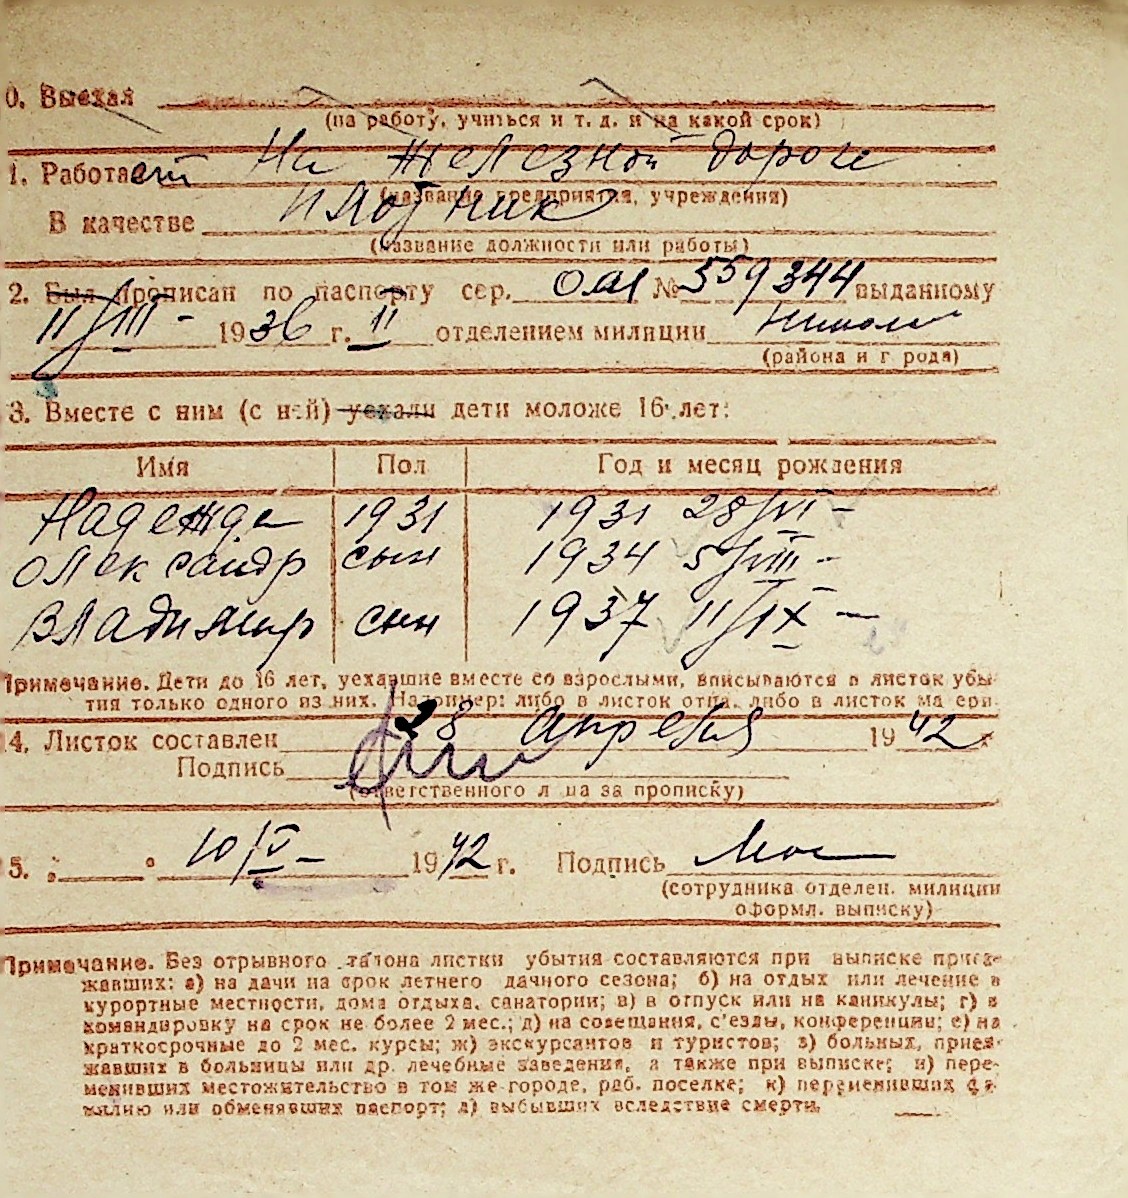 0. Выехал
(на работу, учиться и т. д. и на какой срок)
1. Работает На железной дороге
(название предприятия, учреждения)
В качестве плотник
(название должности или работы)
2. Был прописан по паспорту сер. № 559344 выданному
11/III - 1936 г. II отделением милиции
(района и г рода)
3. Вместе с ним (с ней) уехали дети моложе 16 лет:
Имя Пол Год и месяц рождения
Надежда 1931 1931 28/VI -
Олександр сын 1934 5/VIII -
Владимир сын 1937 11/IX -
Примечание. Дети до 16 лет, уехавшие вместе со взрослыми, вписываются в листок убы-
тия только одного из них. Например: либо в листок отца, либо в листок ма ери.
4. Листок составлен 28 Апреля 1942 г.
Подпись
(ответственного л ца за прописку)
5. 10/V - 1942 г. Подпись
(сотрудника отделен. милиции
оформл. выписку)
Примечание. Без отрывного талона листки убытия составляются при выписке приез-
жавших: а) на дачи на срок летнего дачного сезона; б) на отдых или лечение в
курортные местности, дома отдыха, санатории; в) в отпуск или на каникулы; г) в
командировку на срок не более 2 мес.; д) на совещания, с'езды, конференции; е) на
краткосрочные до 2 мес. курсы; ж) экскурсантов и туристов; з) больных, приез-
жавших в больницы или др. лечебные заведения, а также при выписке; и) пере-
менивших местожительство в том же городе, раб. поселке; к) переменивших фа-
милию или обменявших паспорт; л) выбывших вследствие смерти.